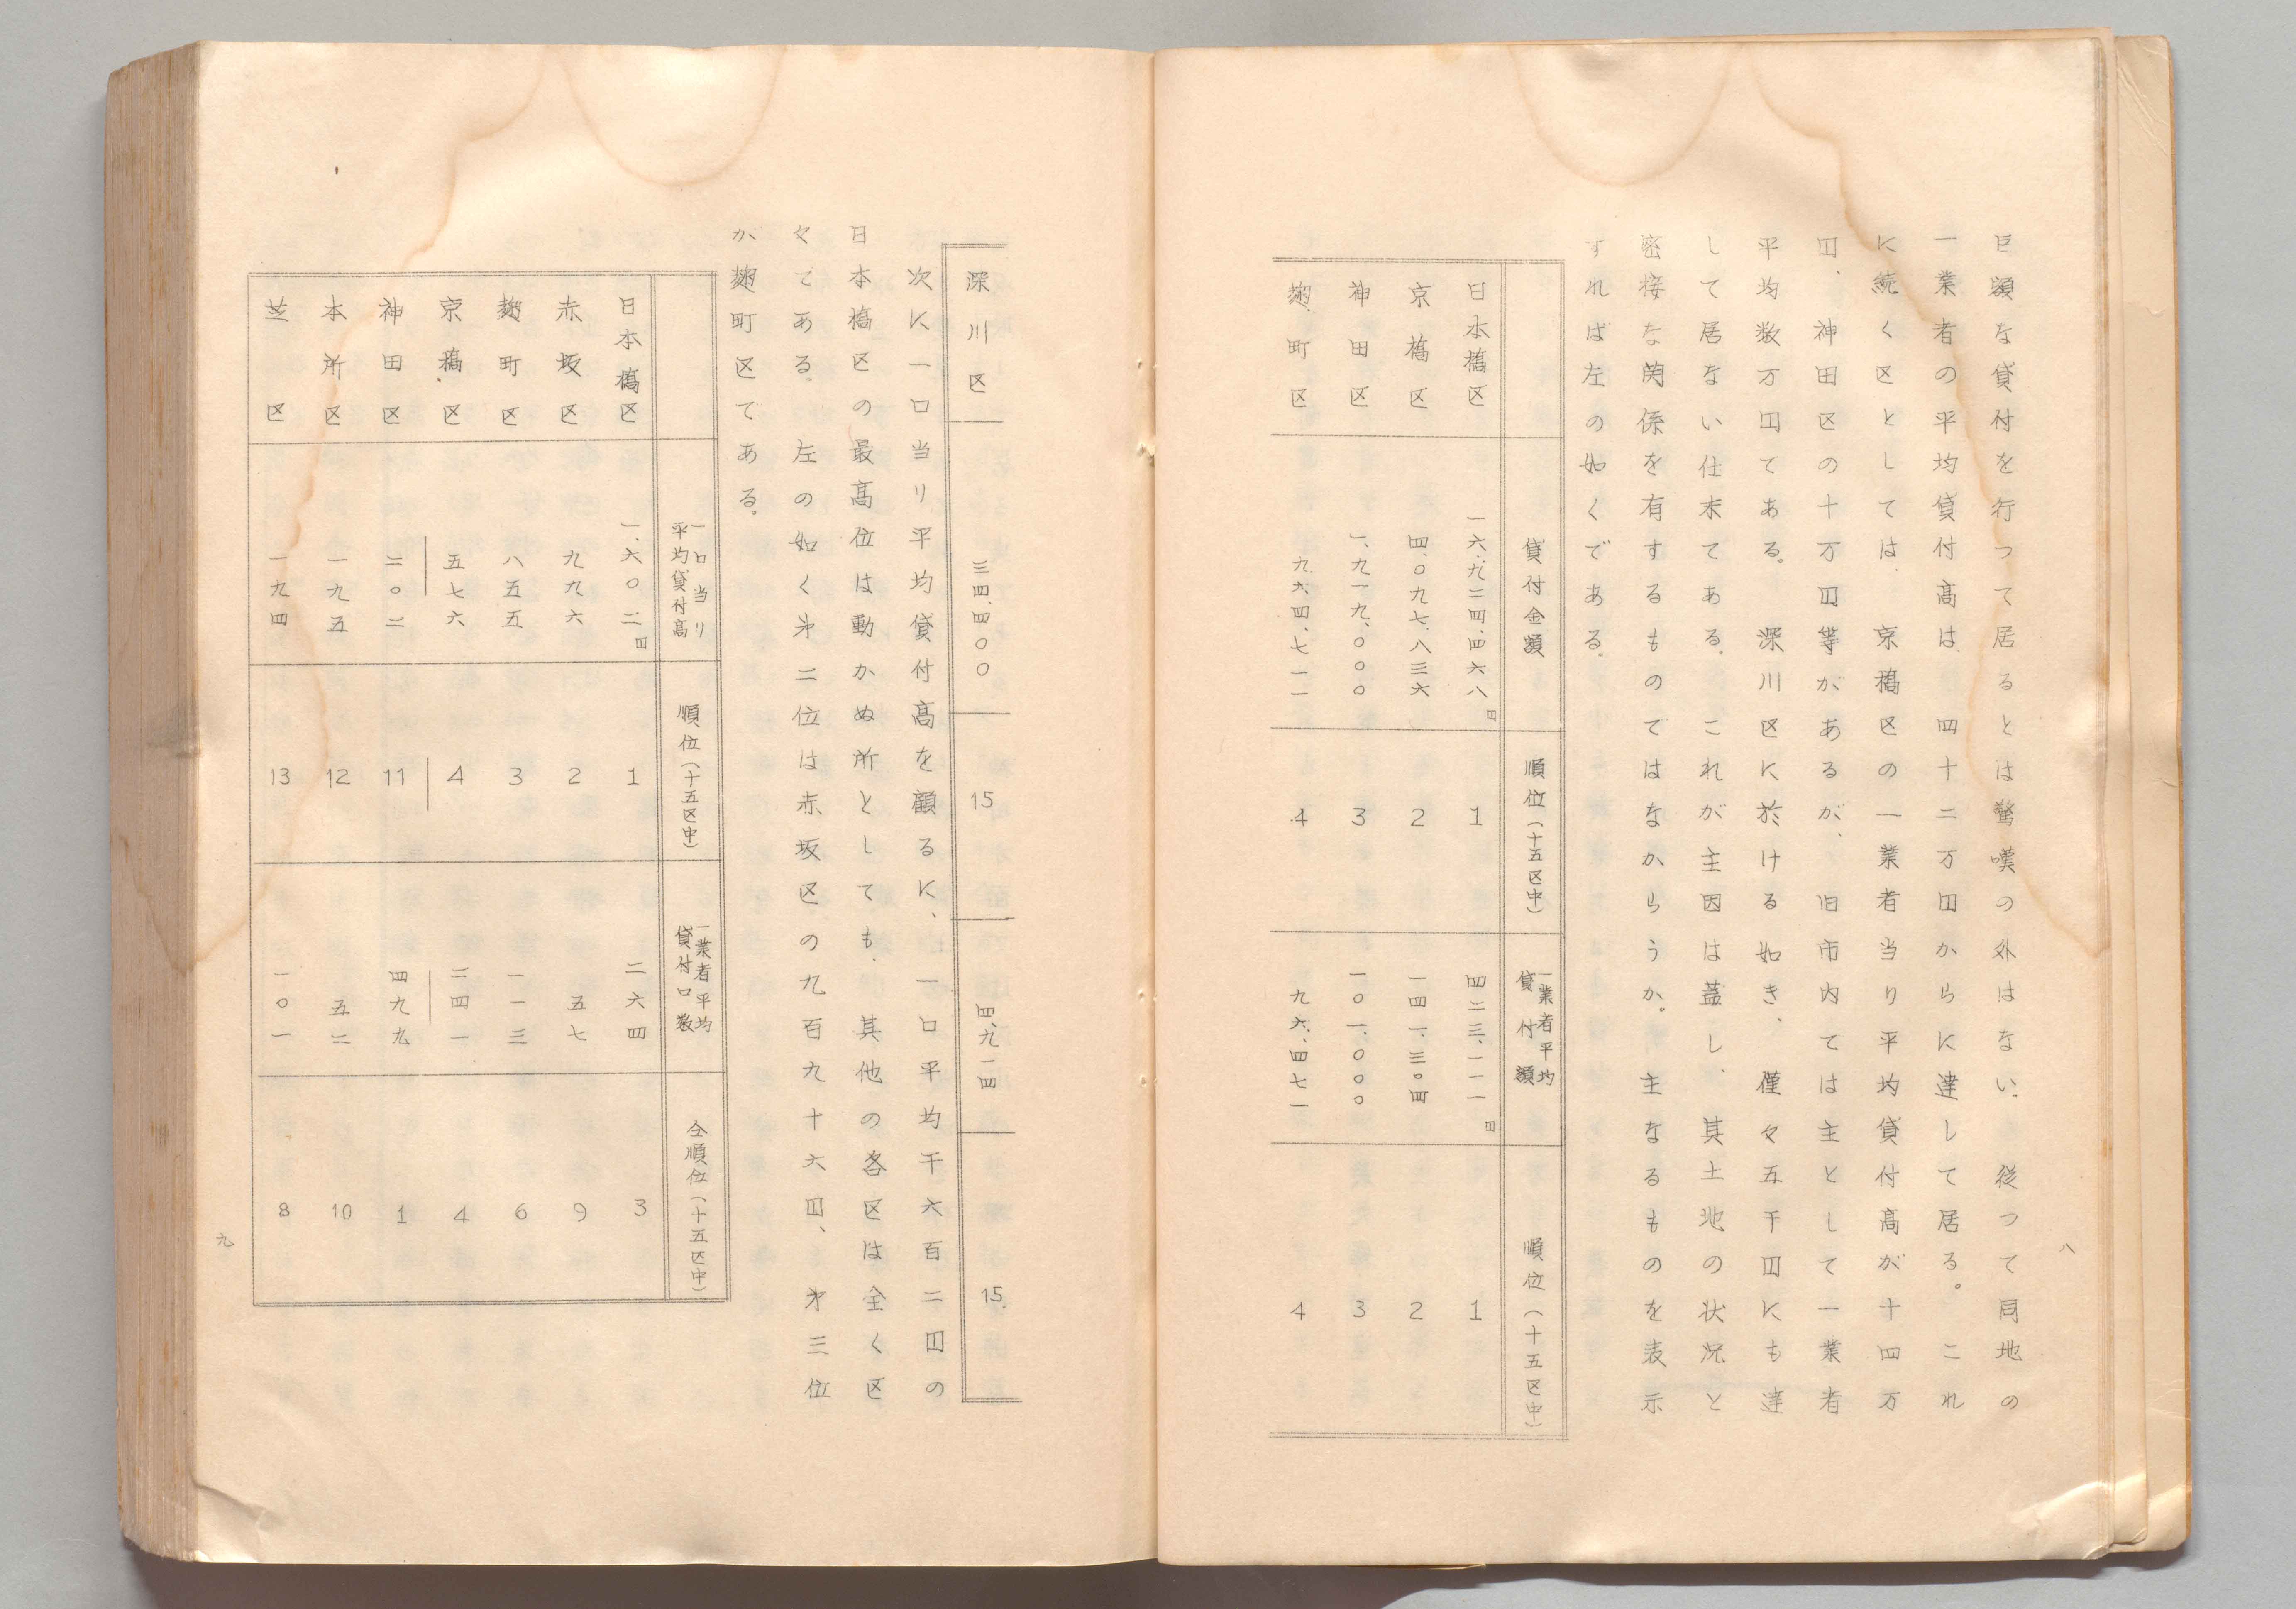 巨額な貸付を行って居るとは驚嘆の外はない、従って同地の
一業者の平均貸付高は、四十二万円からに達して居る。これ
に続く区としては、京橋区の一業者当り平均貸付高が十四万
円、神田区の十万円等があるが、旧市内ては主として一業者
平均数万円てある。深川区に於ける如き、僅々五千円にも達
して居ない仕末てある、これが主因は蓋し、其土地の状況と
密接な関係を有するものてはなからうか。主なるものを表示
すれば左の如くである、
貸付金額 順位(十五区中) 一業者平均貸付額 順位(十五区中)
日本橋区 一六、九二四、四六八円 1 四二三、一一一円 1
京橋区 四、〇九七、八三六 2 一四一、三〇四 2
神田区 一、九一九、〇〇〇 3 一〇一、〇〇〇 3
麹町区 九六四、七一一 4 九六、四七一 4
八
深川区 三四、四〇〇 15 四、九一四 15
次に一口当り平均貸付高を顧るに、一口平均千六百二円の
日本橋区の最高位は動かぬ所としても、其他の各区は全く区
々てある、左の如く第二位は赤坂区の九百九十六円、第三位
か麹町区てある。
一口当り平均貸付高 順位(十五区中) 一業者平均貸付口数 仝順位(十五区中)
日本橋区 一、六〇二円 1 二六四 3
赤坂区 九九六 2 五七 9
麹町区 八五五 3 一一三 6
京橋区 五七六 4 二四一 4
神田区 二〇二 11 四九九 1
本所区 一九五 12 五二 10
芝区 一九四 13 一〇一 8
九